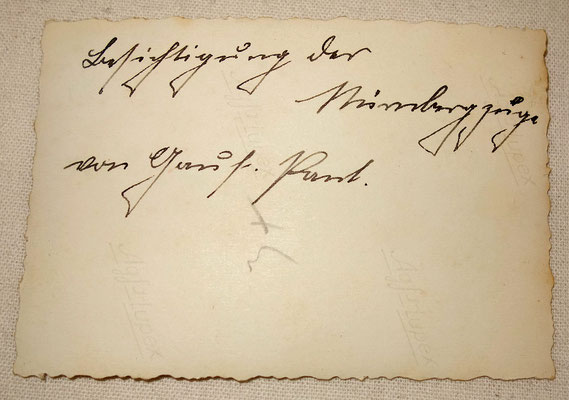 Besichtigung der
Nürnbergzüge
von Gauf. Paul.
Agfa-Lupex
Agfa-Lupex
Agfa-Lupex
Agfa-Lupex